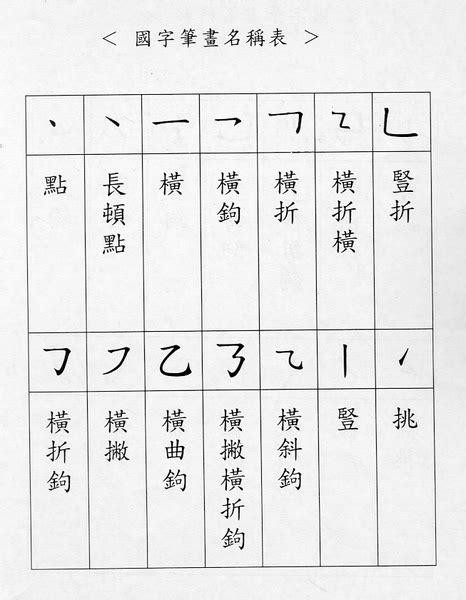 < 國字筆畫名稱表 >
丶 ㇔ 一 乛 ㇕ ㇍ ㇗
點
長頓點
橫
橫鉤
橫折
橫折橫
豎折
㇆ ㇇ 乙 ㇌ ⺄ 丨 ㇀
橫折鉤
橫撇
橫曲鉤
橫撇橫折鉤
橫斜鉤
豎
挑